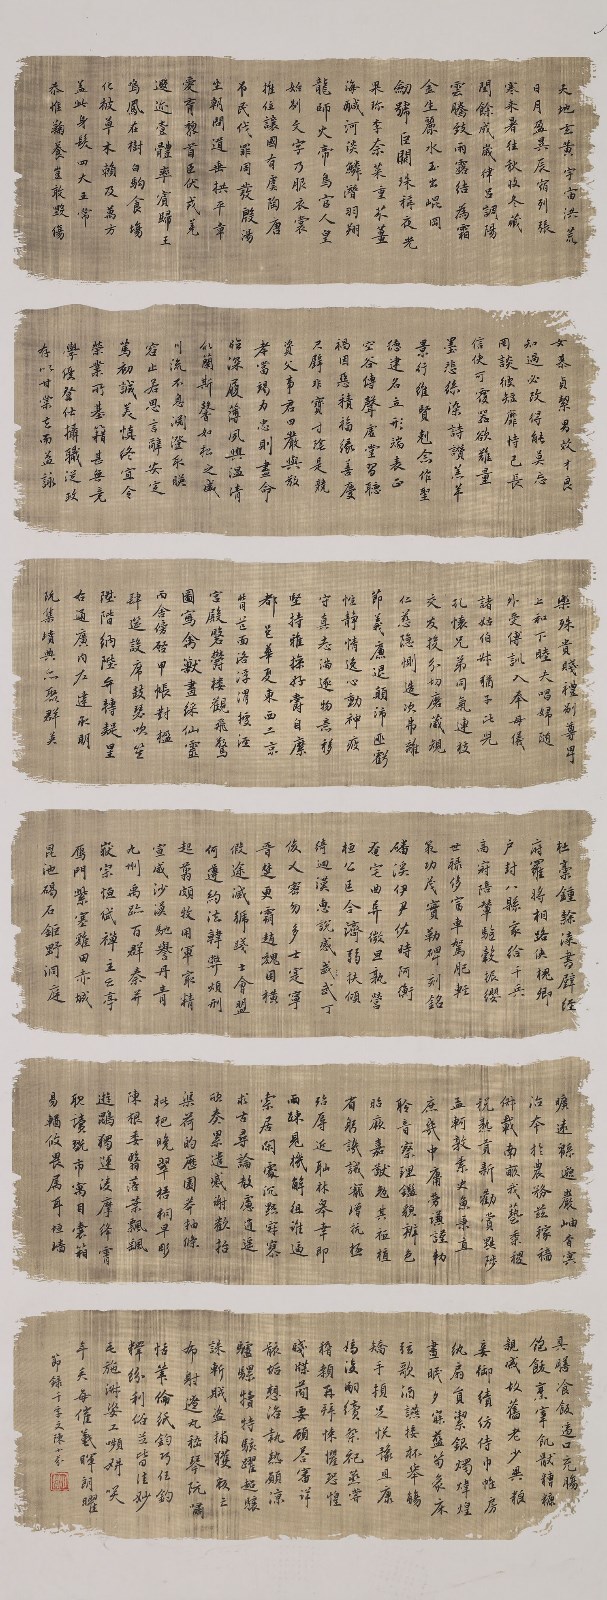 天地玄黃宇宙洪荒
日月盈昃辰宿列張
寒來暑往秋收冬藏
閏餘成歲律呂調陽
雲騰致雨露結為霜
金生麗水玉出崐岡
劒號巨闕珠稱夜光
果珍李柰菜重芥薑
海鹹河淡鱗潛羽翔
龍師火帝鳥官人皇
始制文字乃服衣裳
推位讓國有虞陶唐
弔民伐罪周發殷湯
坐朝問道垂拱平章
愛育黎首臣伏戎羌
遐邇壹體率賓歸王
鳴鳳在樹白駒食場
化被草木賴及萬方
蓋此身髮四大五常
恭惟鞠養豈敢毀傷
女慕貞絜男效才良
知過必改得能莫忘
罔談彼短靡恃己長
信使可覆器欲難量
墨悲絲染詩讚羔羊
景行維賢剋念作聖
德建名立形端表正
空谷傳聲虛堂習聽
禍因惡積福緣善慶
尺璧非寶寸陰是競
資父事君曰嚴與敬
孝當竭力忠則盡命
臨深履薄夙興溫凊
似蘭斯馨如松之盛
川流不息淵澄取暎
容止若思言辭安定
篤初誠美慎終宜令
榮業所基籍甚無竟
學優登仕攝職從政
存以甘棠去而益詠
樂殊貴賤禮別尊卑
上和下睦夫唱婦隨
外受傅訓入奉母儀
諸姑伯叔猶子比兒
孔懷兄弟同氣連枝
交友投分切磨箴規
仁慈隱惻造次弗離
節義廉退顛沛匪虧
性靜情逸心動神疲
守真志滿逐物意移
堅持雅操好爵自縻
都邑華夏東西二京
背芒面洛浮渭據涇
宮殿盤鬱樓觀飛驚
圖寫禽獸畫綵仙靈
丙舍傍啓甲帳對楹
肆筵設席鼓瑟吹笙
陞階納陛弁轉疑星
右通廣內左達承明
既集墳典亦聚群英
杜稾鍾隸漆書壁經
府羅將相路俠槐卿
戶封八縣家給千兵
高冠陪輦驅轂振纓
世祿侈富車駕肥輕
策功茂實勒碑刻銘
磻溪伊尹佐時阿衡
奄宅曲阜微旦孰營
桓公匡合濟弱扶傾
綺迴漢惠說感武丁
俊乂密勿多士寔寧
晉楚更霸趙魏困橫
假途滅虢踐土會盟
何遵約法韓弊煩刑
起翦頗牧用軍最精
宣威沙漠馳譽丹青
九州禹跡百郡秦并
嶽宗恒岱禪主云亭
鴈門紫塞雞田赤城
昆池碣石鉅野洞庭
曠遠緜邈巖岫杳冥
治本於農務茲稼穡
俶載南畝我藝黍稷
稅熟貢新勸賞黜陟
孟軻敦素史魚秉直
庶幾中庸勞謙謹勑
聆音察理鑑貌辨色
貽厥嘉猷勉其祗植
省躬譏誡寵增抗極
殆辱近恥林皋幸即
兩疏見機解組誰逼
索居閑處沉默寂寥
求古尋論散慮逍遙
欣奏累遣慼謝歡招
渠荷的歷園莽抽條
枇杷晚翠梧桐早彫
陳根委翳落葉飄颻
遊鵾獨運凌摩絳霄
耽讀翫市寓目囊箱
易輶攸畏屬耳垣墻
具膳飡飯適口充腸
飽飫烹宰飢猒糟糠
親戚故舊老少異糧
妾御績紡侍巾帷房
紈扇員潔銀燭煒煌
晝眠夕寐藍笋象床
弦歌酒讌接杯舉觴
矯手頓足悅豫且康
嫡後嗣續祭祀蒸嘗
稽顙再拜悚懼恐惶
牋牒簡要顧答審詳
骸垢想浴執熱願涼
驢騾犢特駭躍超驤
誅斬賊盜捕獲叛亡
布射遼丸嵇琴阮嘯
恬筆倫紙鈞巧任釣
釋紛利俗並皆佳妙
毛施淑姿工嚬妍笑
年矢每催羲暉朗曜
節錄千字文陳